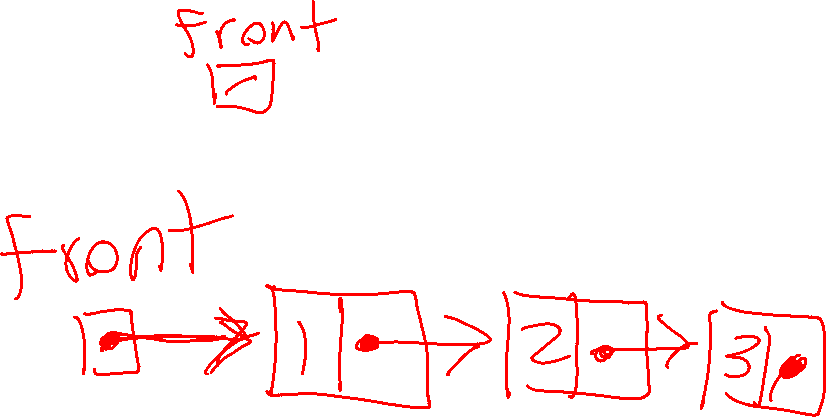 front
front
1 2 3